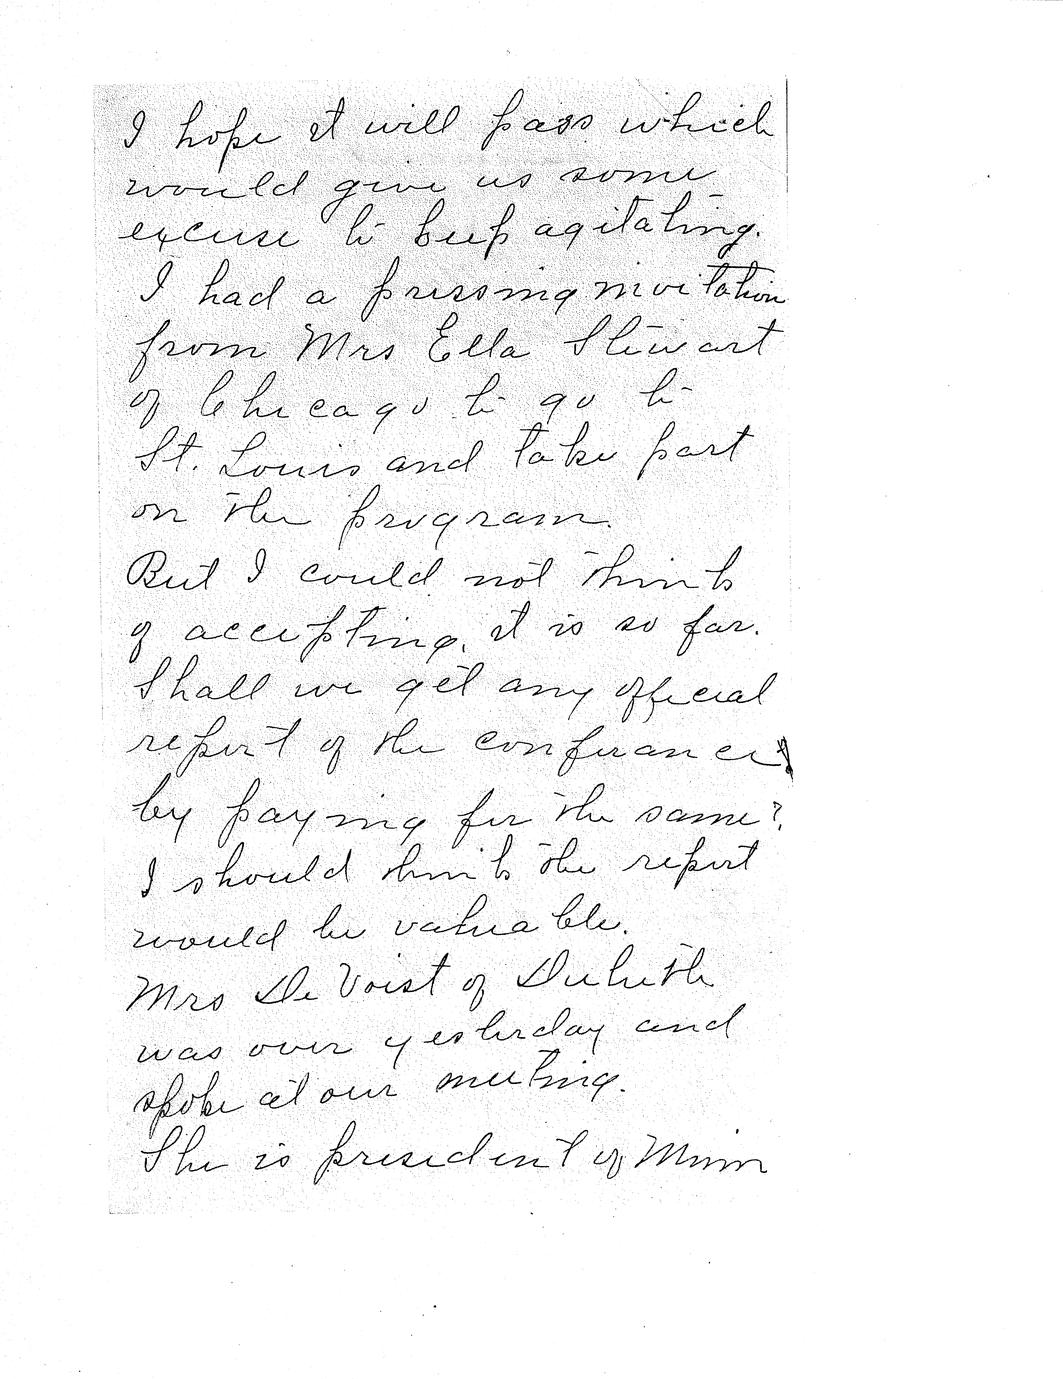 I hope it will pass which
would give us some
excuse to keep agitating.
I had a pressing invitation
from Mrs Ella Stewart
of Chicago to go to
St. Louis and take part
on the program.
But I could not think
of accepting, it is so far.
Shall we get any official
report of the conferance
by paying for the same?
I should think the report
would be valuable.
Mrs De Voist of Duluth
was over yesterday and
spoke at our meeting.
She is president of Minn